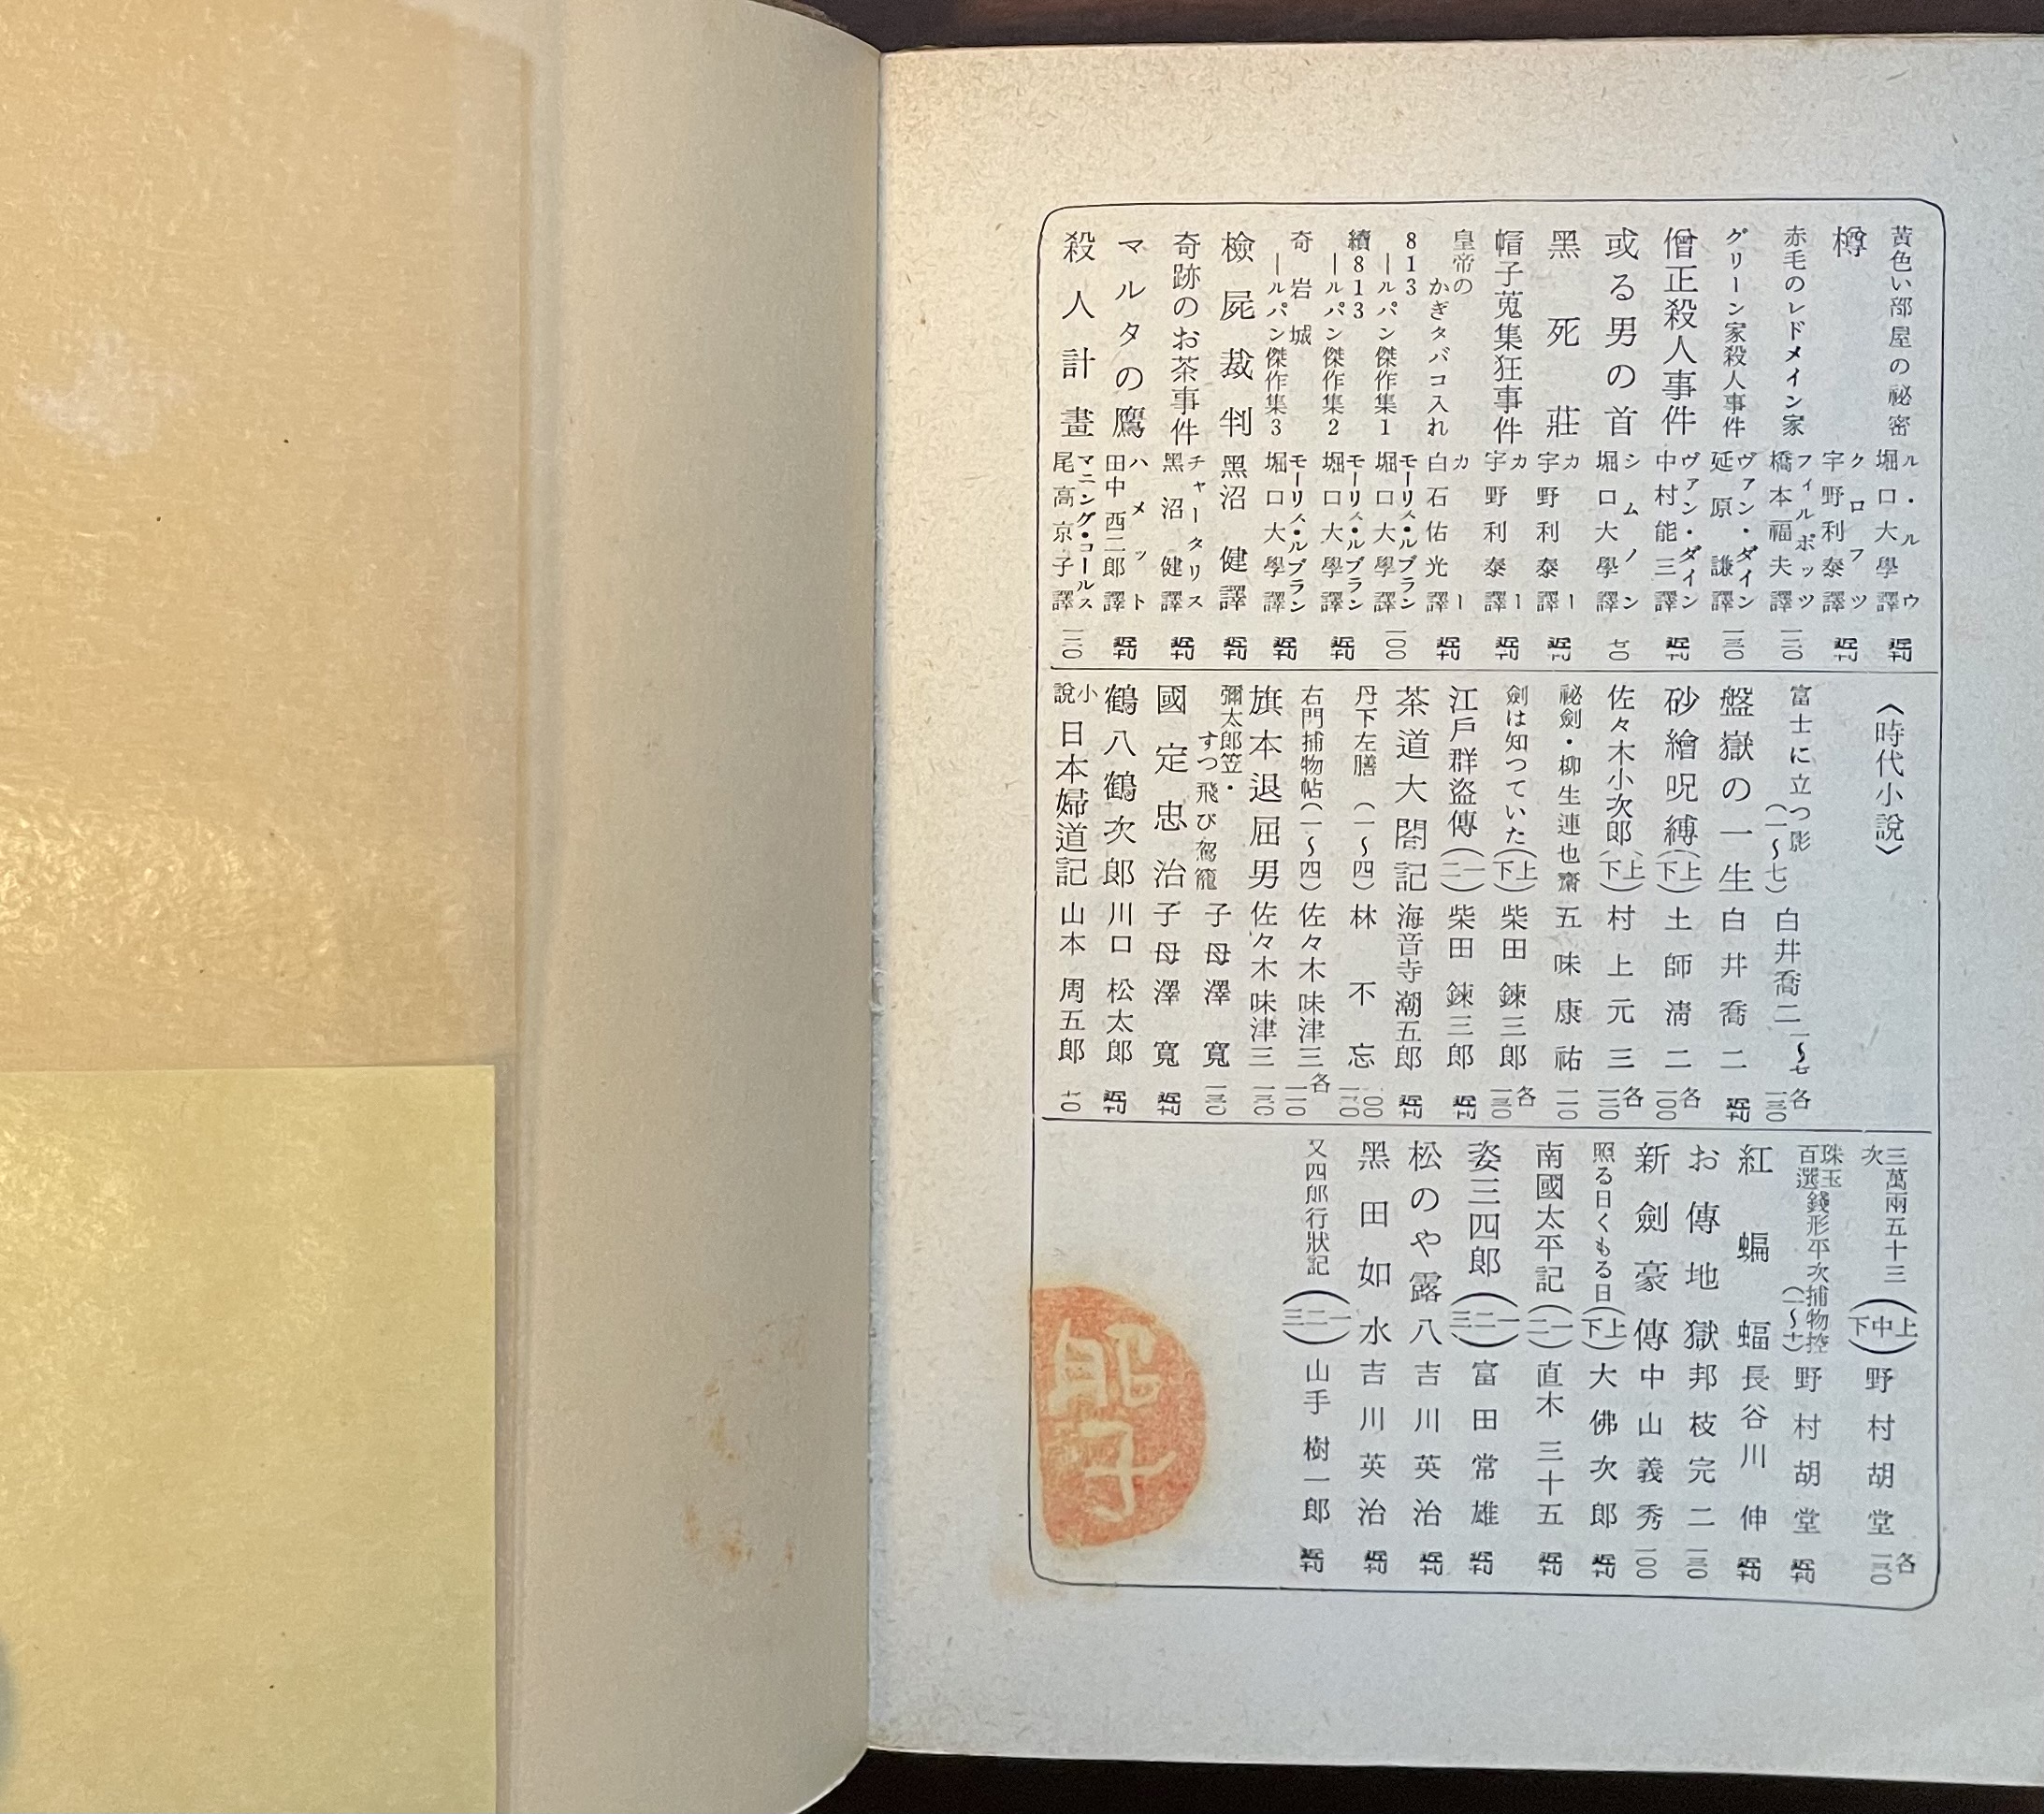 黃色い部屋の祕密 ル・ルルウ 堀口大學譯 近刊
樽 クロフツ 宇野利泰譯 近刊
赤毛のレドメイン家 フィルポッツ 橋本福夫譯
グリーン家殺人事件 ヴァン・ダイン 延原謙譯
僧正殺人事件 ヴァン・ダイン 中村能三譯 近刊
或る男の首 シムノン 堀口大學譯
黑死莊 カー 宇野利泰譯 近刊
帽子蒐集狂事件 カー 宇野利泰譯 近刊
皇帝のかぎタバコ入れ カー 白石佑光譯 近刊
813 ―ルパン傑作集1 モーリス・ルブラン 堀口大學譯 一〇〇
續813 ―ルパン傑作集2 モーリス・ルブラン 堀口大學譯 近刊
奇岩城 ―ルパン傑作集3 モーリス・ルブラン 堀口大學譯 近刊
檢屍裁判 黑沼健譯 近刊
奇跡のお茶事件 チャータリス 黑沼健譯 近刊
マルタの鷹 ハメット 田中西二郎譯 近刊
殺人計畫 マニング・コールス 尾高京子譯
〈時代小說〉
富士に立つ影(一〜七) 白井喬二 各
盤嶽の一生 白井喬二 近刊
砂繪呪縛(上下) 土師淸二 各一〇〇
佐々木小次郎(上下) 村上元三 各
祕劍・柳生連也齋 五味康祐 一一〇
劍は知つていた(上下) 柴田鍊三郎 各
江戶群盜傳(一二) 柴田鍊三郎 近刊
茶道大閤記 海音寺潮五郎 近刊
丹下左膳(一〜四) 林不忘
右門捕物帖(一〜四) 佐々木味津三 各
旗本退屈男 佐々木味津三
彌太郎笠・すつ飛び駕籠 子母澤寬
國定忠治 子母澤寬 近刊
鶴八鶴次郎 川口松太郎 近刊
小說 日本婦道記 山本周五郎
三萬兩五十三次(上中下) 野村胡堂 各
珠玉百選 錢形平次捕物控(一〜十) 野村胡堂 近刊
紅蝙蝠 長谷川伸 近刊
お傳地獄 邦枝完二
新劍豪傳 中山義秀 一〇〇
照る日くもる日(上下) 大佛次郎 近刊
南國太平記(一二) 直木三十五 近刊
姿三四郎(一二三) 富田常雄 近刊
松のや露八 吉川英治 近刊
黑田如水 吉川英治 近刊
又四郎行狀記(一二三) 山手樹一郎 近刊
昭子